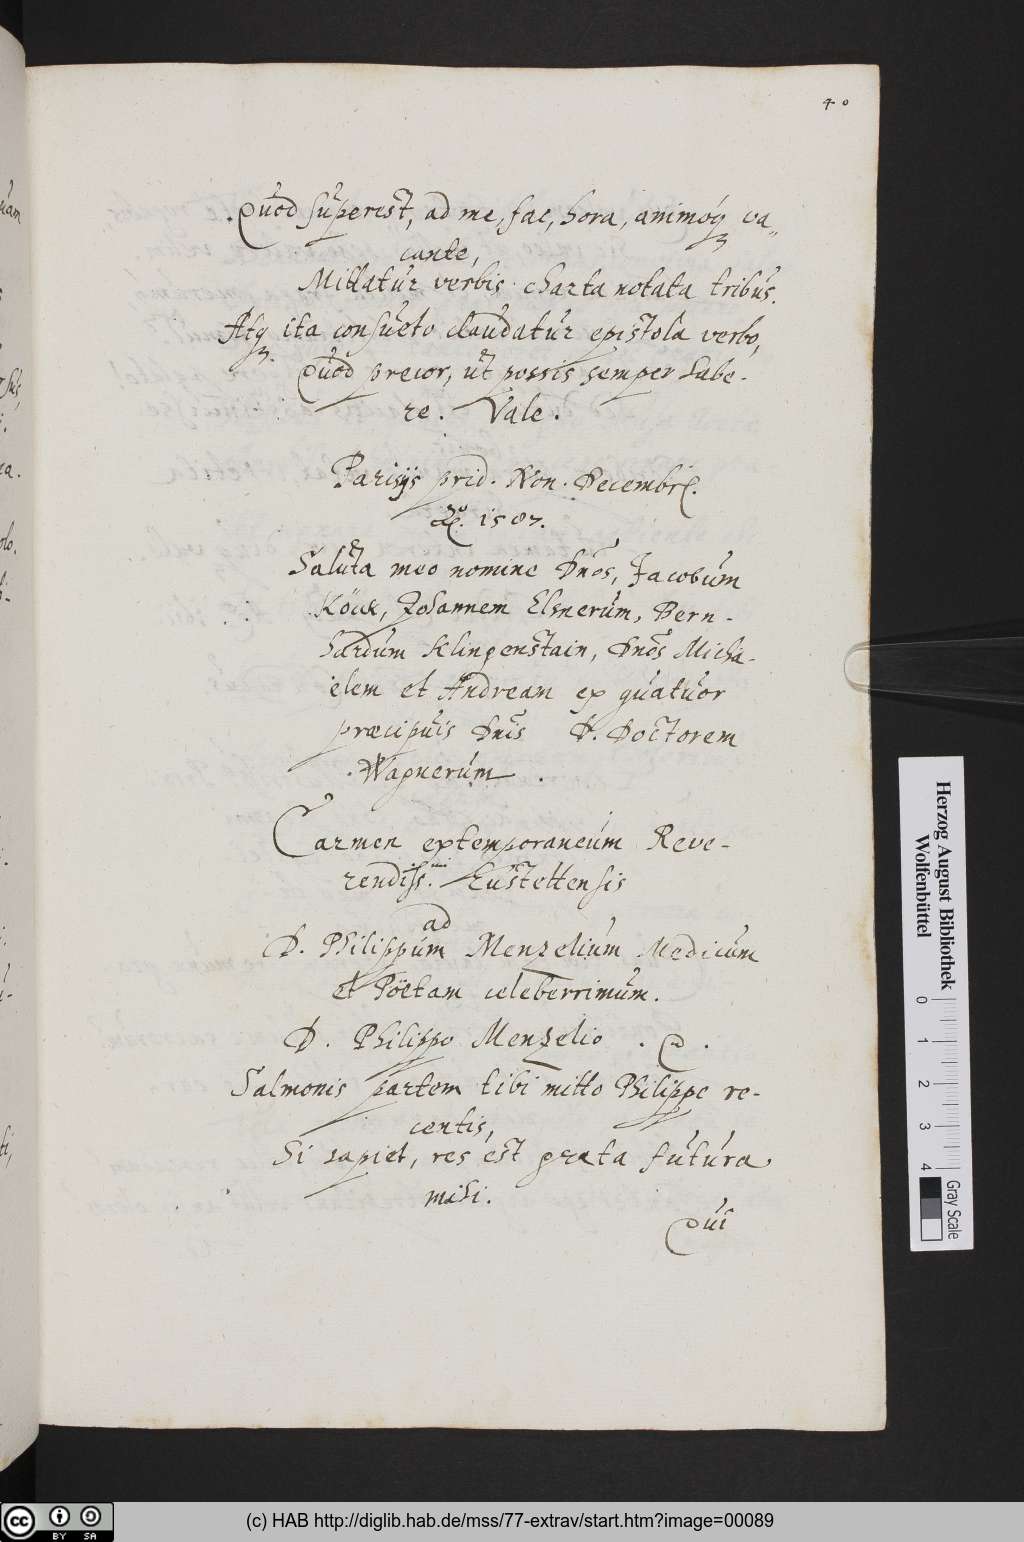 40
Quod superest, ad me, fac, hora, animóq; va„
cante,
Mittatur verbis charta notata tribus.
Atq; ita consueto claudatur epistola verbo,
Quod precor, ut possis semper habe-
re. Vale.
Parisijs prid. Non. Decembr.
Aō. 1587.
Saluta meo nomine Dnōs, Jacobum
Köck, Johannem Elsnerum, Bern-
hardum Klingenstain, Dnōs Micha-
elem et Andream ex quatuor
præcipuis Dnīs D. Doctorem
Wagnerum.
Carmen extemporaneum Reve-
rendiss.mi Eustettensis
ad
D. Philippum Menzelium Medicum
et Pöetam celeberrimum.
D. Philippo Menzelio
Salmonis partem tibi mitto Philippe re-
centis,
Si sapiet, res est grata futura
mihi.
Qui
Herzog August Bibliothek
Wolfenbüttel
0 1 2 3 4
Gray Scale
cc BY SA
(c) HAB http://diglib.hab.de/mss/77-extrav/start.htm?image=00089